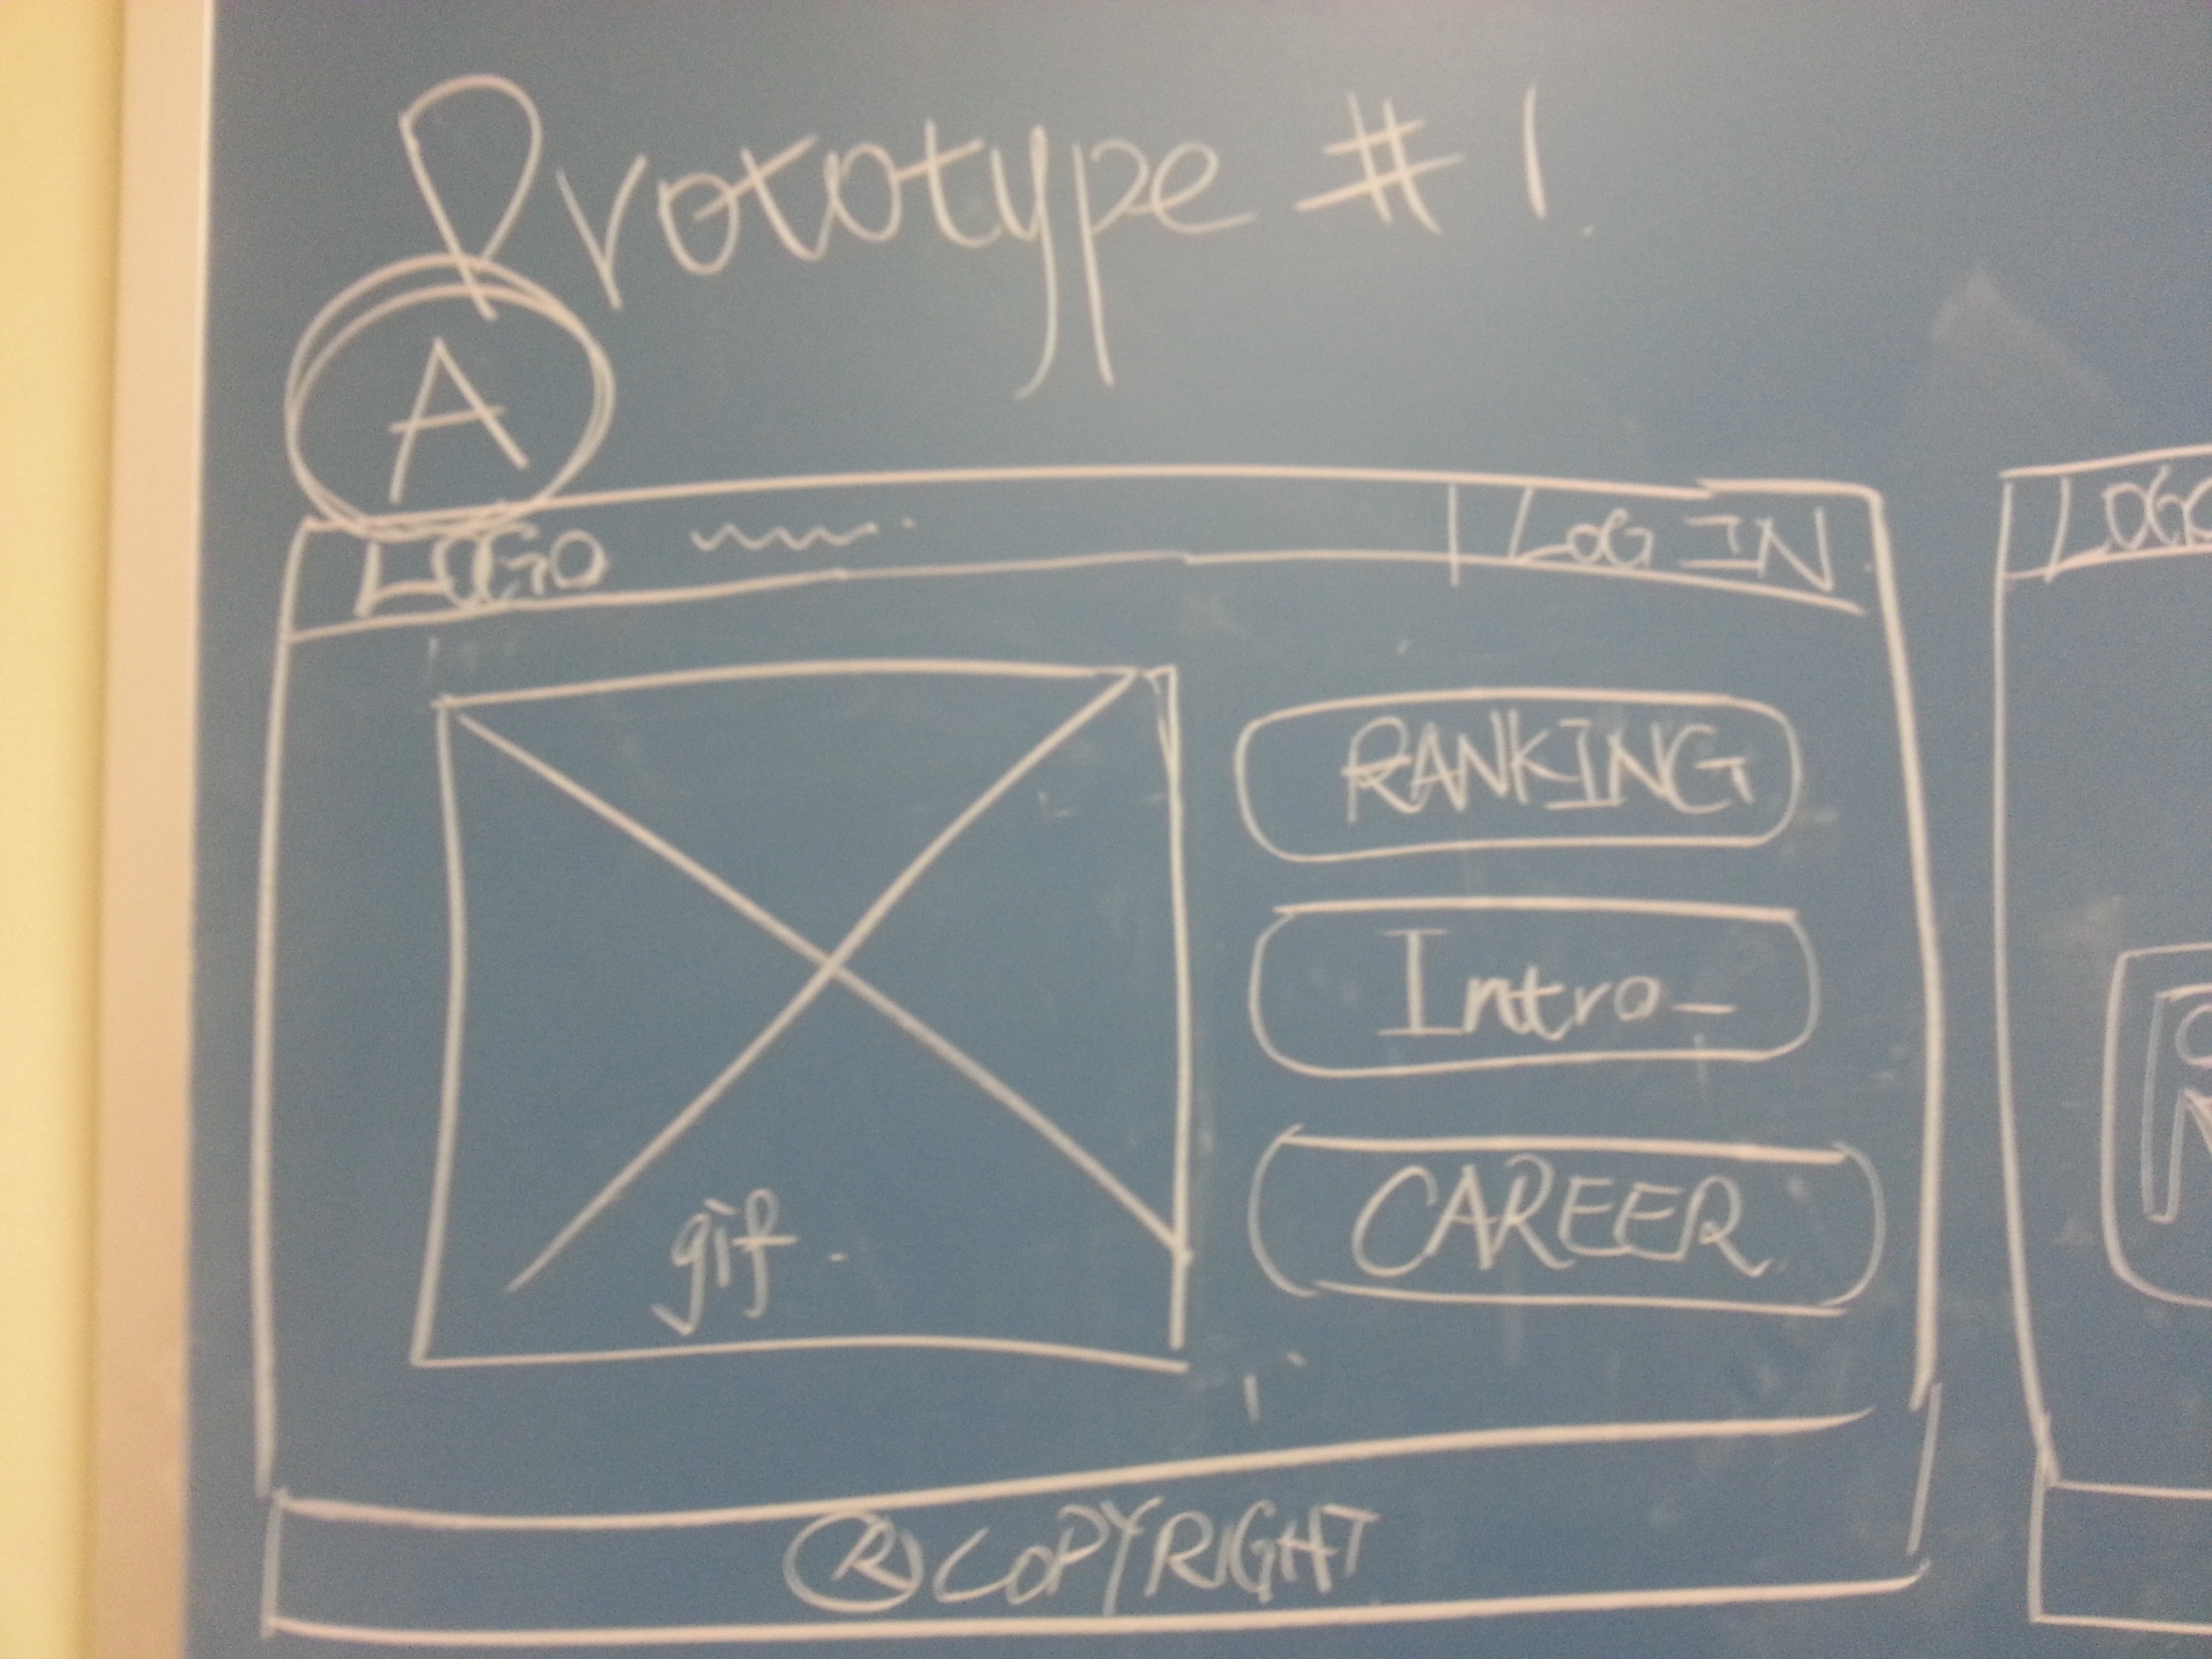 Prototype #1.
A
LOGO
LOG IN
RANKING
Intro-
gif.
CAREER
® COPYRIGHT
LOGO